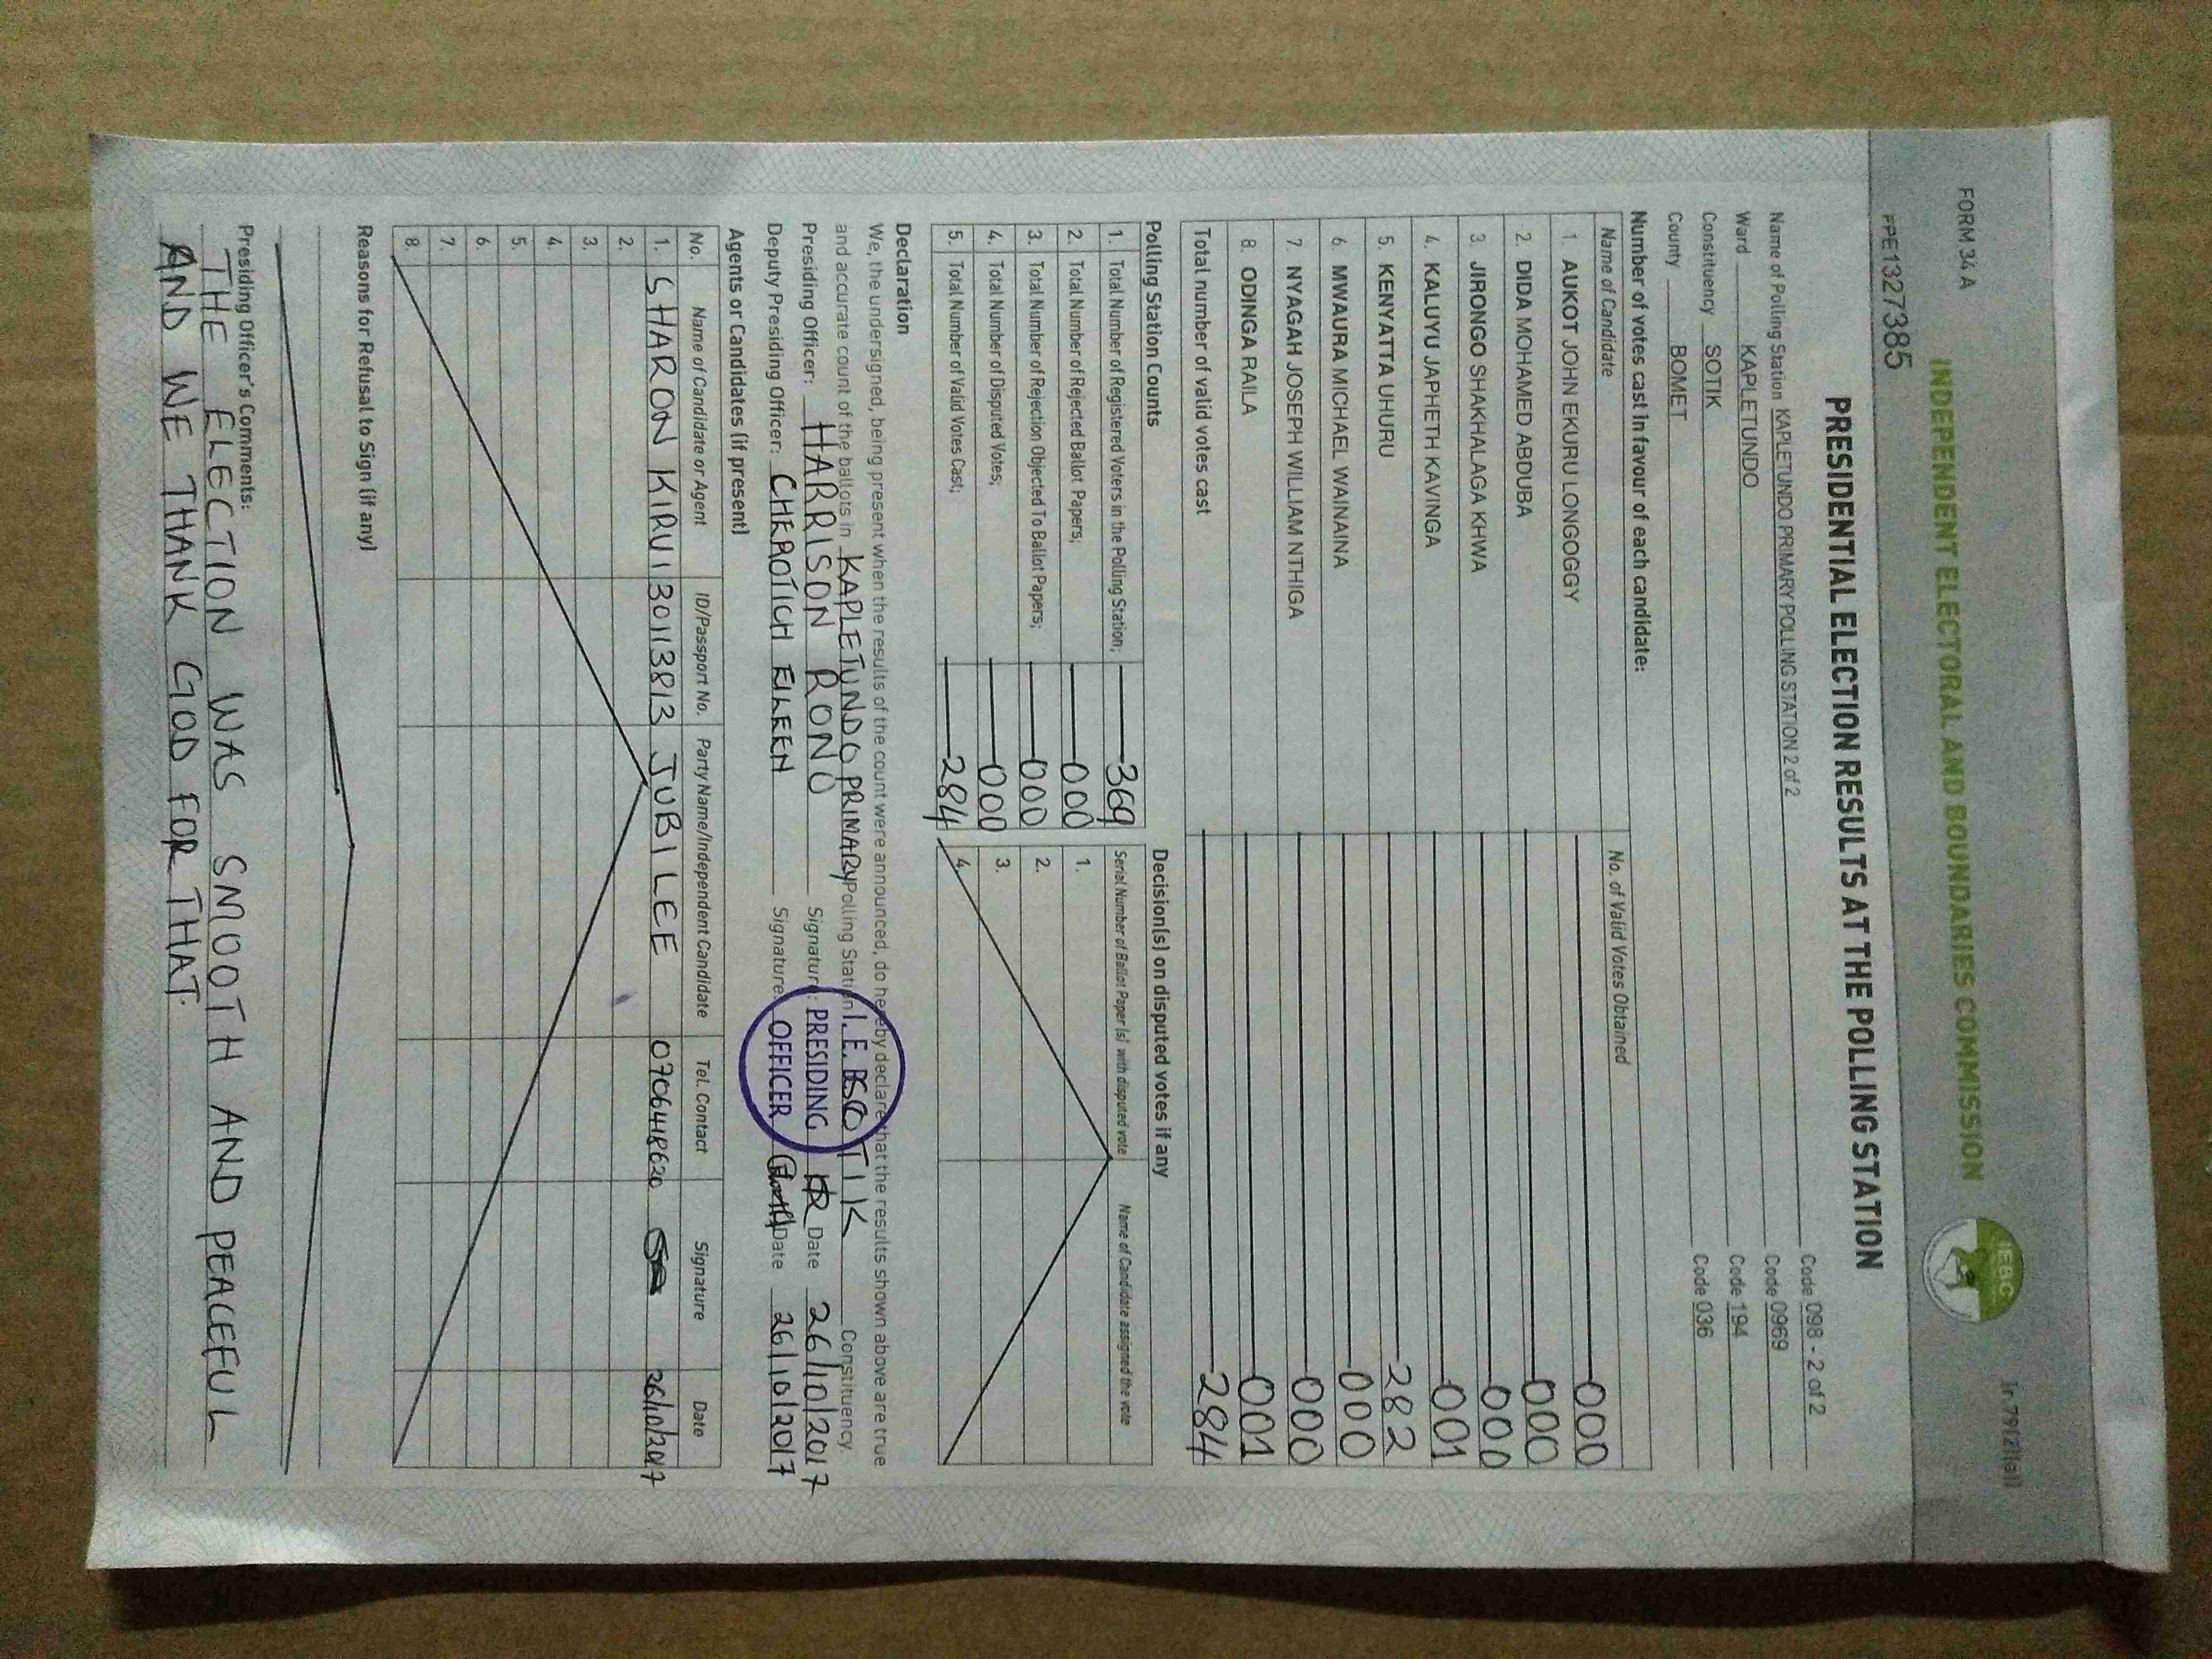 FORM 34 A
Ir.79(2)(a)
INDEPENDENT ELECTORAL AND BOUNDARIES COMMISSION
IEBC
PPE1327385
PRESIDENTIAL ELECTION RESULTS AT THE POLLING STATION
Name of Polling Station KAPLETUNDO PRIMARY POLLING STATION 2 of 2 Code 098 - 2 of 2
Ward KAPLETUNDO Code 0969
Constituency SOTIK Code 194
County BOMET Code 036
Number of votes cast in favour of each candidate:
Name of Candidate No. of Valid Votes Obtained
1. AUKOT JOHN EKURU LONGOGGY 000
2. DIDA MOHAMED ABDUBA 000
3. JIRONGO SHAKHALAGA KHWA 000
4. KALUYU JAPHETH KAVINGA 001
5. KENYATTA UHURU 282
6. MWAURA MICHAEL WAINAINA 000
7. NYAGAH JOSEPH WILLIAM NTHIGA 000
8. ODINGA RAILA 001
Total number of valid votes cast 284
Polling Station Counts
1. Total Number of Registered Voters in the Polling Station; 369
2. Total Number of Rejected Ballot Papers; 000
3. Total Number of Rejection Objected To Ballot Papers; 000
4. Total Number of Disputed Votes; 000
5. Total Number of Valid Votes Cast; 284
Decision(s) on disputed votes if any
Serial Number of Ballot Paper (s) with disputed vote Name of Candidate assigned the vote
1.
2.
3.
4.
Declaration
We, the undersigned, being present when the results of the count were announced, do hereby declare that the results shown above are true
and accurate count of the ballots in KAPLETUNDO PRIMARY Polling Station SOTIK Constituency.
Presiding Officer: HARRISON RONO Signature: HR Date 26/10/2017
Deputy Presiding Officer: CHEROTICH EILEEN Signature: Date 26/10/2017
I.E.B.C
PRESIDING
OFFICER
Agents or Candidates (if present)
No. Name of Candidate or Agent ID/Passport No. Party Name/Independent Candidate Tel. Contact Signature Date
1. SHARON KIRUI 30113813 JUBILEE 0706418620 26/10/2017
2.
3.
4.
5.
6.
7.
8.
Reasons for Refusal to Sign (if any)
Presiding Officer's Comments:
THE ELECTION WAS SMOOTH AND PEACEFUL
AND WE THANK GOD FOR THAT.